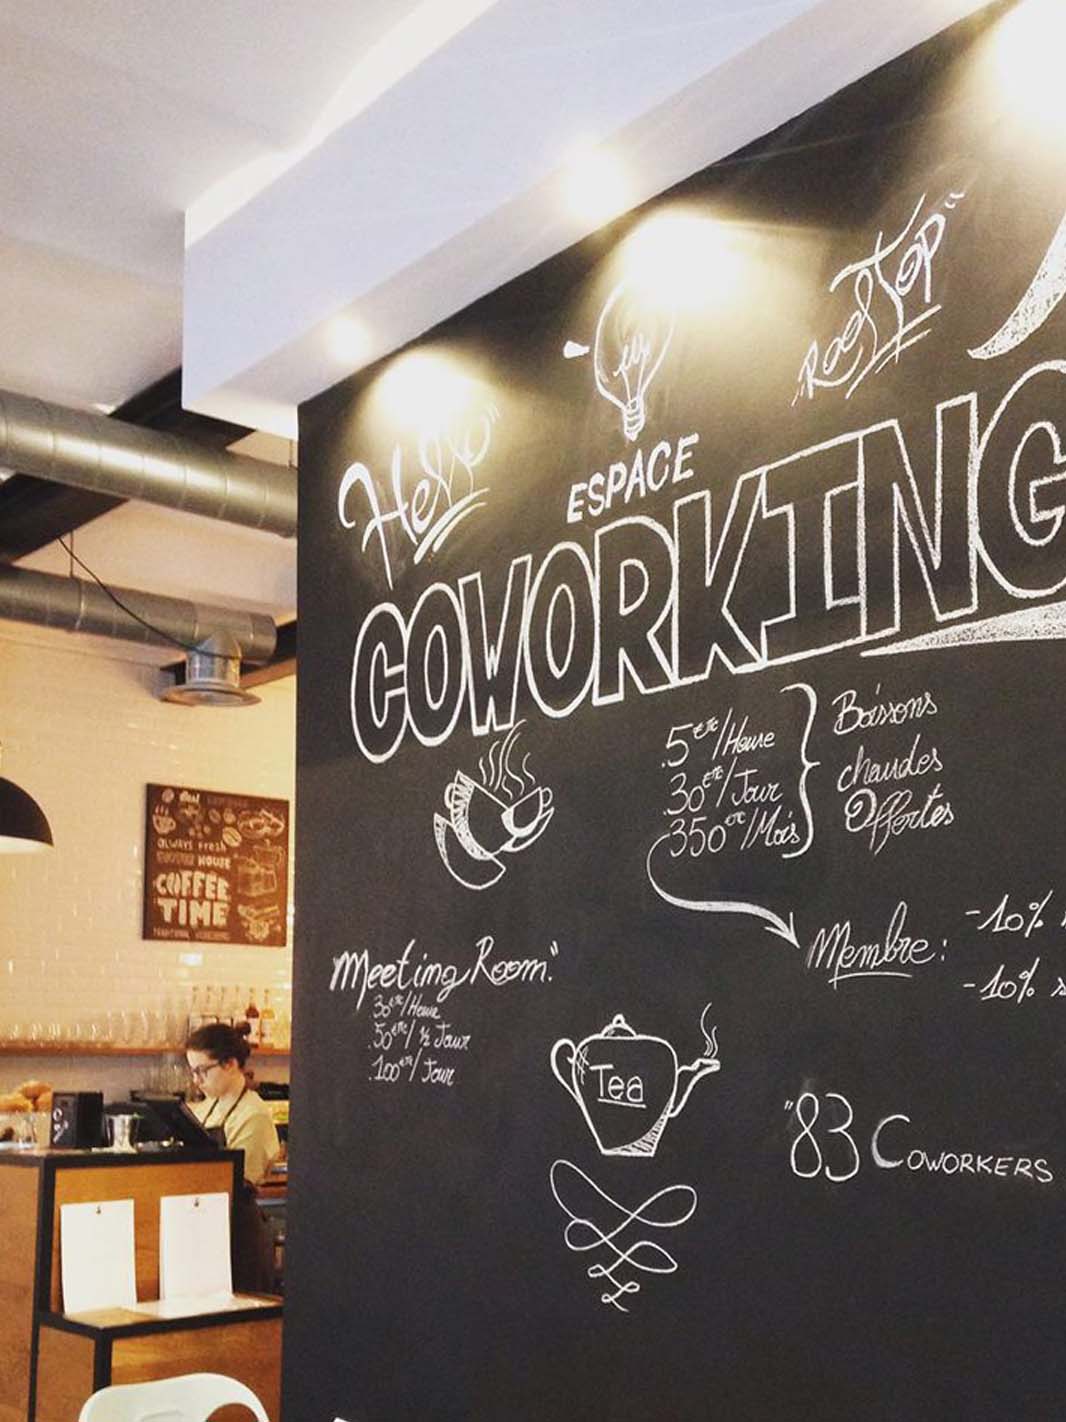 "Hello"
"RoofTop"
ESPACE
COWORKING
5€/Heure
30€/Jour
350€/Mois
Boissons
chaudes
Offertes
Membre:
-10%
-10%
Meeting Room"
30€/Heure
50€/½ Jour
100€/Jour
Tea
"83 COWORKERS
ALWAYS FRESH
HOUSE
COFFEE
TIME